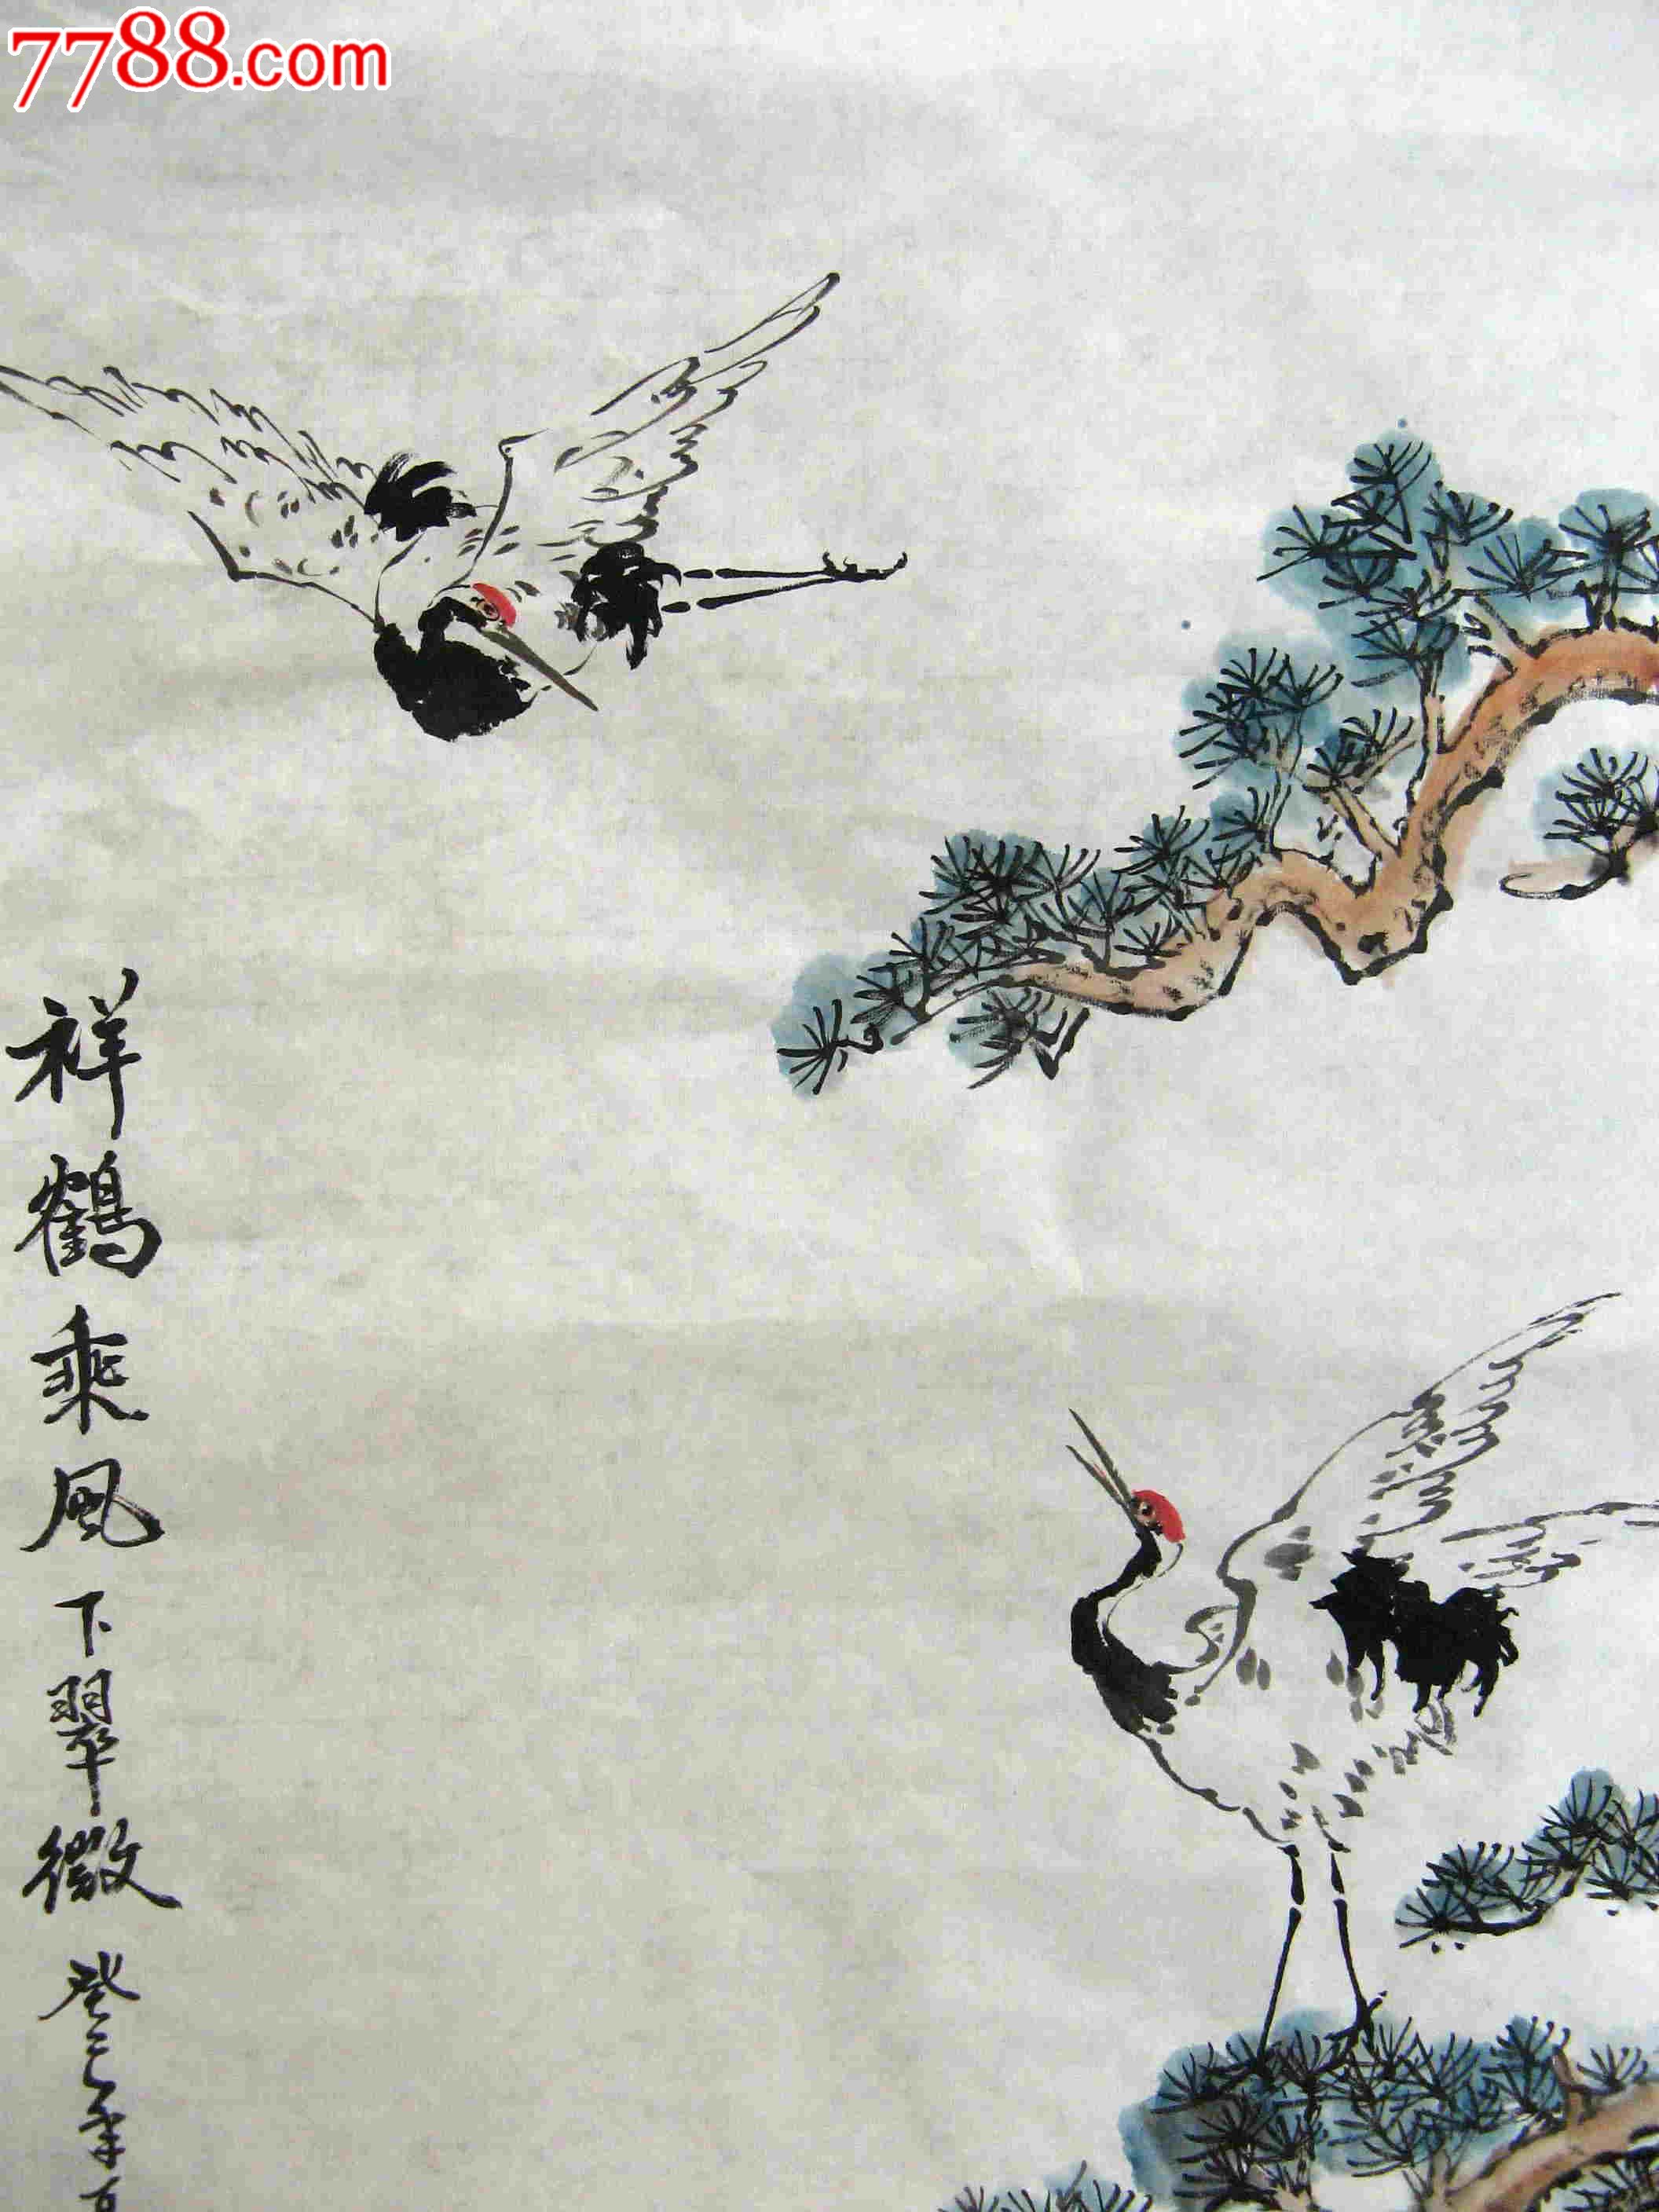 7788.com
祥鶴乘風下翠微癸巳年